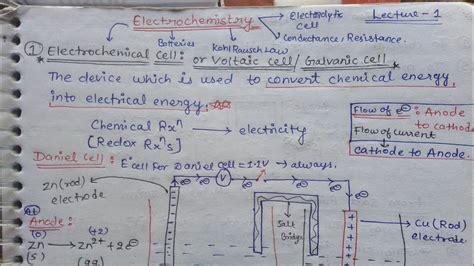 Electrochemistry
Electrolytic cell
Lecture-1
Batteries
Kohl Rausch Law
Conductance, Resistance.
① Electrochemical Cell: or Voltaic cell/Galvanic cell
The device which is used to convert chemical energy,
into electrical energy,
Flow of e⊖: Anode to cathode
Flow of current
cathode to Anode.
Chemical Rxⁿ → electricity
[Redox Rxⁿs]
Daniel Cell: E°cell for Daniel Cell = 1.1V → always.
Zn(rod) electrode
V
e
Salt Bridge
Cu(Rod) electrode
Anode:
(0) (+2)
Zn → Zn²⁺ + 2e⊖
(s) (aq)